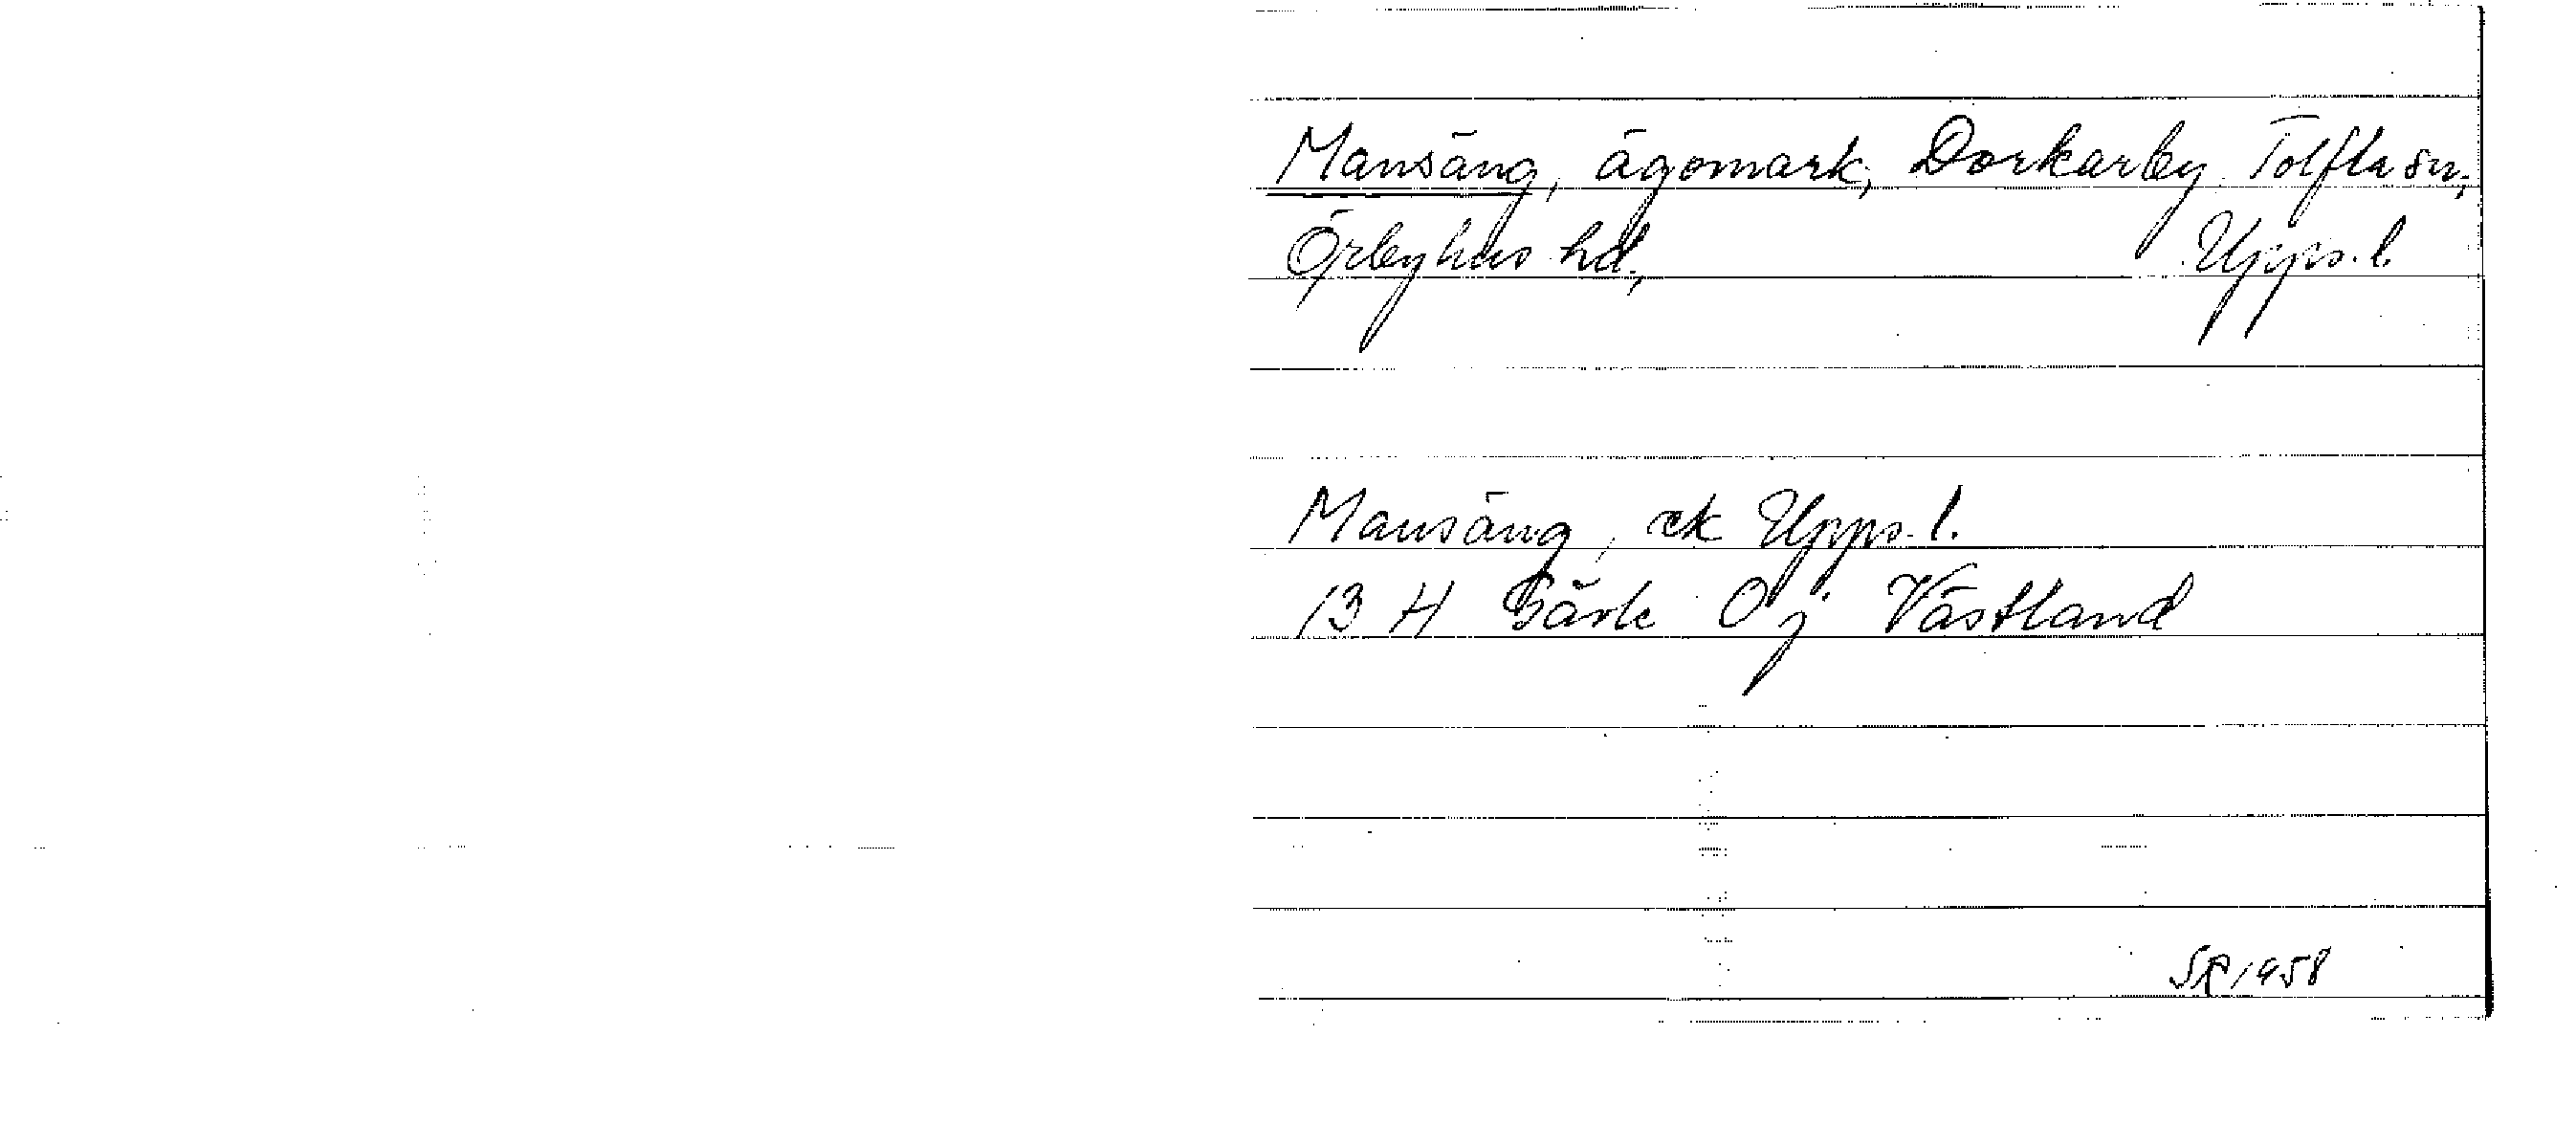 Mansäng, ägomark, Dorkarby Tolfta sn,
Örbyhus hd, Upps. l.
Mansäng, ek Upps. l.
13 H Gävle 0j Västland
SR 1958